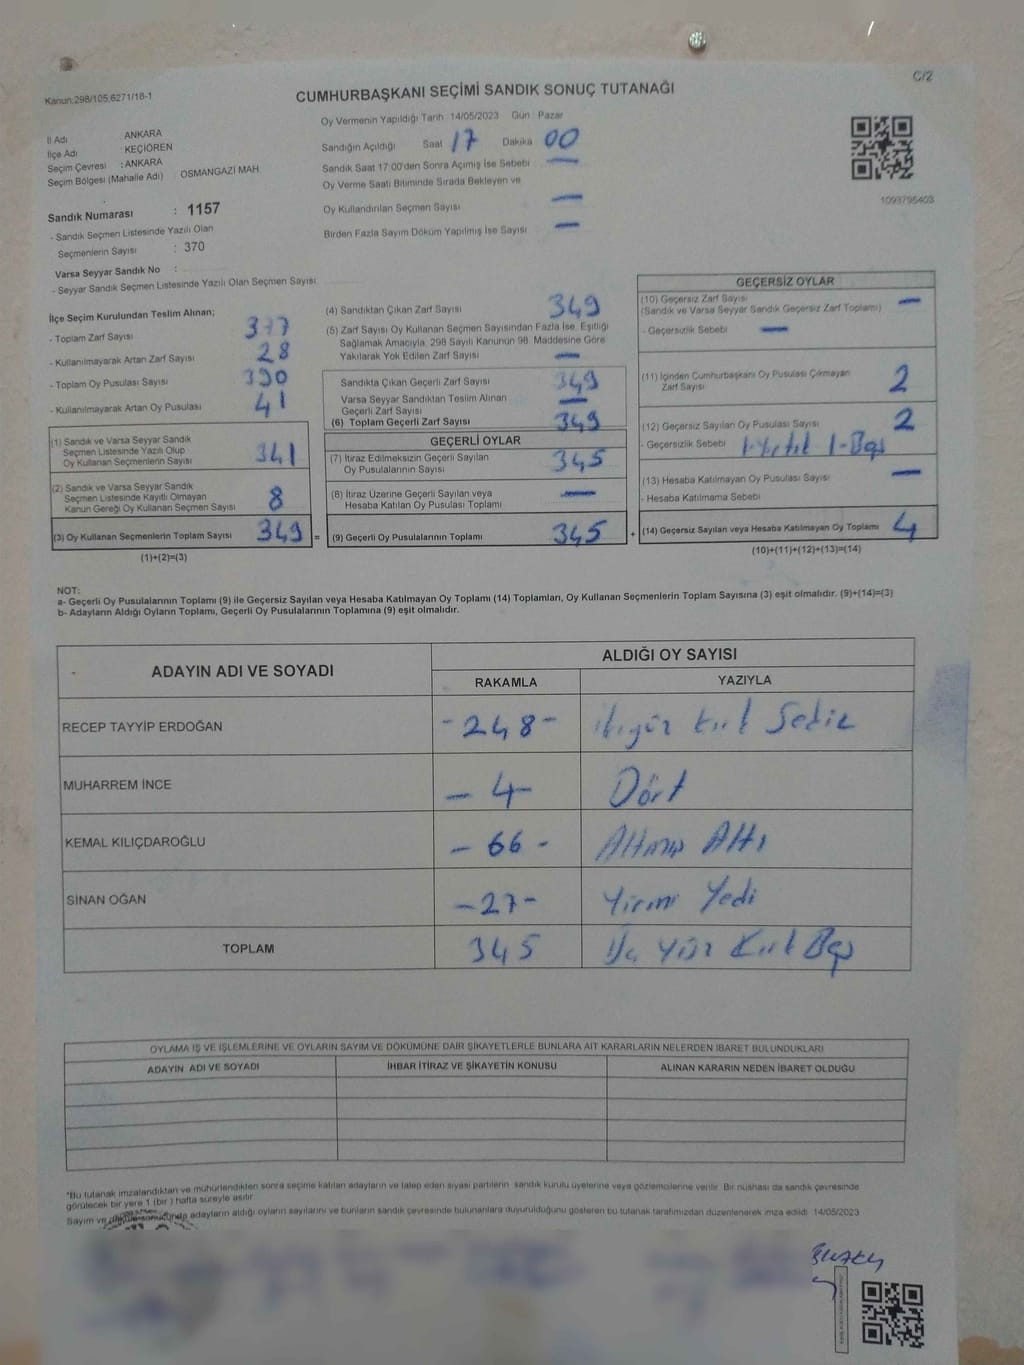 C/2
Kanun:298/105;6271/18-1
CUMHURBAŞKANI SEÇİMİ SANDIK SONUÇ TUTANAĞI
Oy Vermenin Yapıldığı Tarih 14/05/2023 Gün Pazar
İl Adı : ANKARA
İlçe Adı : KEÇİÖREN
Seçim Çevresi : ANKARA
Seçim Bölgesi (Mahalle Adı) : OSMANGAZİ MAH
Sandığın Açıldığı Saat 17 Dakika 00
Sandık Saat 17:00'den Sonra Açımış İse Sebebi —
Oy Verme Saati Bitiminde Sırada Bekleyen ve
Oy Kullandırılan Seçmen Sayısı —
Birden Fazla Sayım Döküm Yapılmış İse Sayısı —
1093795403
Sandık Numarası : 1157
- Sandık Seçmen Listesinde Yazılı Olan
Seçmenlerin Sayısı : 370
Varsa Seyyar Sandık No :
- Seyyar Sandık Seçmen Listesinde Yazılı Olan Seçmen Sayısı:
İlçe Seçim Kurulundan Teslim Alınan;
- Toplam Zarf Sayısı 377
- Kullanılmayarak Artan Zarf Sayısı 28
- Toplam Oy Pusulası Sayısı 390
- Kullanılmayarak Artan Oy Pusulası 41
(1) Sandık ve Varsa Seyyar Sandık
Seçmen Listesinde Yazılı Olup
Oy Kullanan Seçmenlerin Sayısı 341
(2) Sandık ve Varsa Seyyar Sandık
Seçmen Listesinde Kayıtlı Olmayan
Kanun Gereği Oy Kullanan Seçmen Sayısı 8
(3) Oy Kullanan Seçmenlerin Toplam Sayısı 349 =
(1)+(2)=(3)
(4) Sandıktan Çıkan Zarf Sayısı 349
(5) Zarf Sayısı Oy Kullanan Seçmen Sayısından Fazla İse, Eşitliği
Sağlamak Amacıyla, 298 Sayılı Kanunun 98. Maddesine Göre
Yakılarak Yok Edilen Zarf Sayısı —
Sandıkta Çıkan Geçerli Zarf Sayısı 349
Varsa Seyyar Sandıktan Teslim Alınan
Geçerli Zarf Sayısı —
(6) Toplam Geçerli Zarf Sayısı 349
GEÇERLİ OYLAR
(7) İtiraz Edilmeksizin Geçerli Sayılan
Oy Pusulalarının Sayısı 345
(8) İtiraz Üzerine Geçerli Sayılan veya
Hesaba Katılan Oy Pusulası Toplamı —
(9) Geçerli Oy Pusulalarının Toplamı 345 +
GEÇERSİZ OYLAR
(10) Geçersiz Zarf Sayısı —
(Sandık ve Varsa Seyyar Sandık Geçersiz Zarf Toplamı)
- Geçersizlik Sebebi —
(11) İçinden Cumhurbaşkanı Oy Pusulası Çıkmayan
Zarf Sayısı 2
(12) Geçersiz Sayılan Oy Pusulası Sayısı 2
- Geçersizlik Sebebi 1-Yırtık 1-Boş
(13) Hesaba Katılmayan Oy Pusulası Sayısı —
- Hesaba Katılmama Sebebi
(14) Geçersiz Sayılan veya Hesaba Katılmayan Oy Toplamı 4
(10)+(11)+(12)+(13)=(14)
NOT:
a- Geçerli Oy Pusulalarının Toplamı (9) ile Geçersiz Sayılan veya Hesaba Katılmayan Oy Toplamı (14) Toplamları, Oy Kullanan Seçmenlerin Toplam Sayısına (3) eşit olmalıdır. (9)+(14)=(3)
b- Adayların Aldığı Oyların Toplamı, Geçerli Oy Pusulalarının Toplamına (9) eşit olmalıdır.
ADAYIN ADI VE SOYADI ALDIĞI OY SAYISI
RAKAMLA YAZIYLA
RECEP TAYYİP ERDOĞAN -248- ikiyüz kırk Sekiz
MUHARREM İNCE -4- Dört
KEMAL KILIÇDAROĞLU -66- Altmış Altı
SİNAN OĞAN -27- Yirmi Yedi
TOPLAM 345 Üç Yüz Kırk Beş
OYLAMA İŞ VE İŞLEMLERİNE VE OYLARIN SAYIM VE DÖKÜMÜNE DAİR ŞİKAYETLERLE BUNLARA AİT KARARLARIN NELERDEN İBARET BULUNDUKLARI
ADAYIN ADI VE SOYADI İHBAR İTİRAZ VE ŞİKAYETİN KONUSU ALINAN KARARIN NEDEN İBARET OLDUĞU
*Bu tutanak imzalandıktan ve mühürlendikten sonra seçime katılan adayların ve talep eden siyasi partilerin sandık kurulu üyelerine veya gözlemcilerine verilir. Bir nüshası da sandık çevresinde
görülecek bir yere 1 (bir ) hafta süreyle asılır
Sayım ve döküm sonucunda adayların aldığı oyların sayılarını ve bunların sandık çevresinde bulunanlara duyurulduğunu gösteren bu tutanak tarafımızdan düzenlenerek imza edildi 14/05/2023